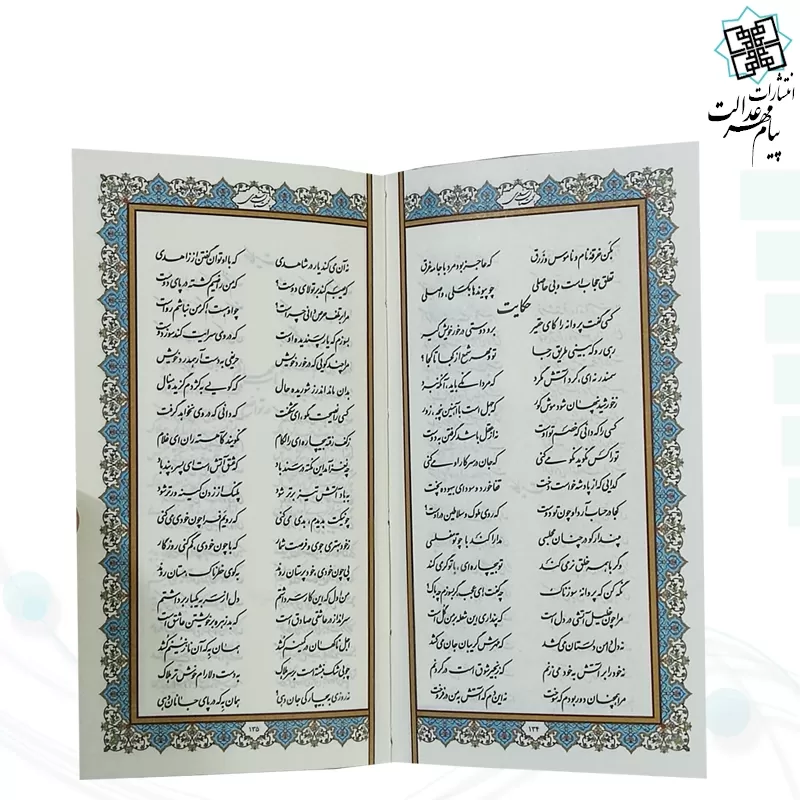 انتشارات
پیام مهر عدالت
بکن خرقه نام و ناموس و زرق که عاجز بود مرد با جامه غرق
تعلق حجاب است و بی حاصلی چو پیوندها بگسلی، واصلی
حکایت
کسی گفت پروانه را کای حقیر برو دوستی در خور خویش گیر
رهی رو که بینی طریق رجا تو و مهر شمع از کجا تا کجا؟
سمندر نه ای، گرد آتش مگرد که مردانگی باید، آنگه نبرد
ز خورشید پنهان شود موش کور که جهل است با آهنین پنجه، زور
کسی را که دانی که خصم تو اوست نه از عقل باشد گرفتن به دوست
تو را کس نگوید نکو می کنی که جان در سر کار او می کنی
گدایی که از پادشه خواست دخت قفا خورد و سودای بیهوده پخت
کجا در حساب آرد او چون تو دوست که روی ملوک و سلاطین در اوست؟
مپندار کو در چنان مجلسی مدارا کند با چو تو مفلسی
وگر با همه خلق نرمی کند تو بیچاره ای، با تو گرمی کند
نگه کن که پروانه سوزناک چه گفت، ای عجب گر بسوزم چه باک؟
مرا چون خلیل آتشی در دل است که پنداری این شعله بر من گل است
نه دل دامن دلستان می کشد که مهرش گریبان جان می کشد
نه خود را بر آتش به خود می زنم که زنجیر شوق است در گردنم
مرا همچنان دور بودم که سوخت نه این دم که آتش به من درفروخت
۱۳۴
نه آن می کند یار در شاهدی که با او توان گفتن از زاهدی
که عیبم کند بر تولای دوست؟ که من راضیم کشته در پای دوست
مرا بر تلف حرص دانی چراست؟ چو او هست، اگر من نباشم رواست
بسوزم که یار پسندیده اوست که در وی سرایت کند سوز دوست
مرا چند گویی که در خورد خویش حریفی به دست آر همدرد خویش
بدان ماند اندرز شوریده حال که گویی به کژدم گزیده منال
کسی را نصیحت مگو ای شگفت که دانی که در وی نخواهد گرفت
ز کف رفته بیچاره ای را لگام نگویند کاهسته ران ای غلام
چه نغز آمد این نکته در سندباد که عشق آتش است ای پسر پند، باد
به باد آتش تیز برتر شود پلنگ از زدن کینه ورتر شود
چو نیکت بدیدم، بدی می کنی که رویم فرا چون خودی می کنی
ز خود بهتری جوی و فرصت شمار که با چون خودی، گم کنی روزگار
پی چون خودی، خود پرستان روند به کوی خطرناک، مستان روند
من اول که این کار سر داشتم دل از سر به یکبار برداشتم
سرانداز در عاشقی صادق است که بدزهره بر خویشتن عاشق است
اجل ناگهان در کمینم کشد همان به که آن نازنینم کشد
چو بی شک نبشته است بر سر هلاک به دست دلارام خوش تر هلاک
نه روزی به بیچارگی جان دهی؟ همان به که در پای جانان دهی
۱۳۵